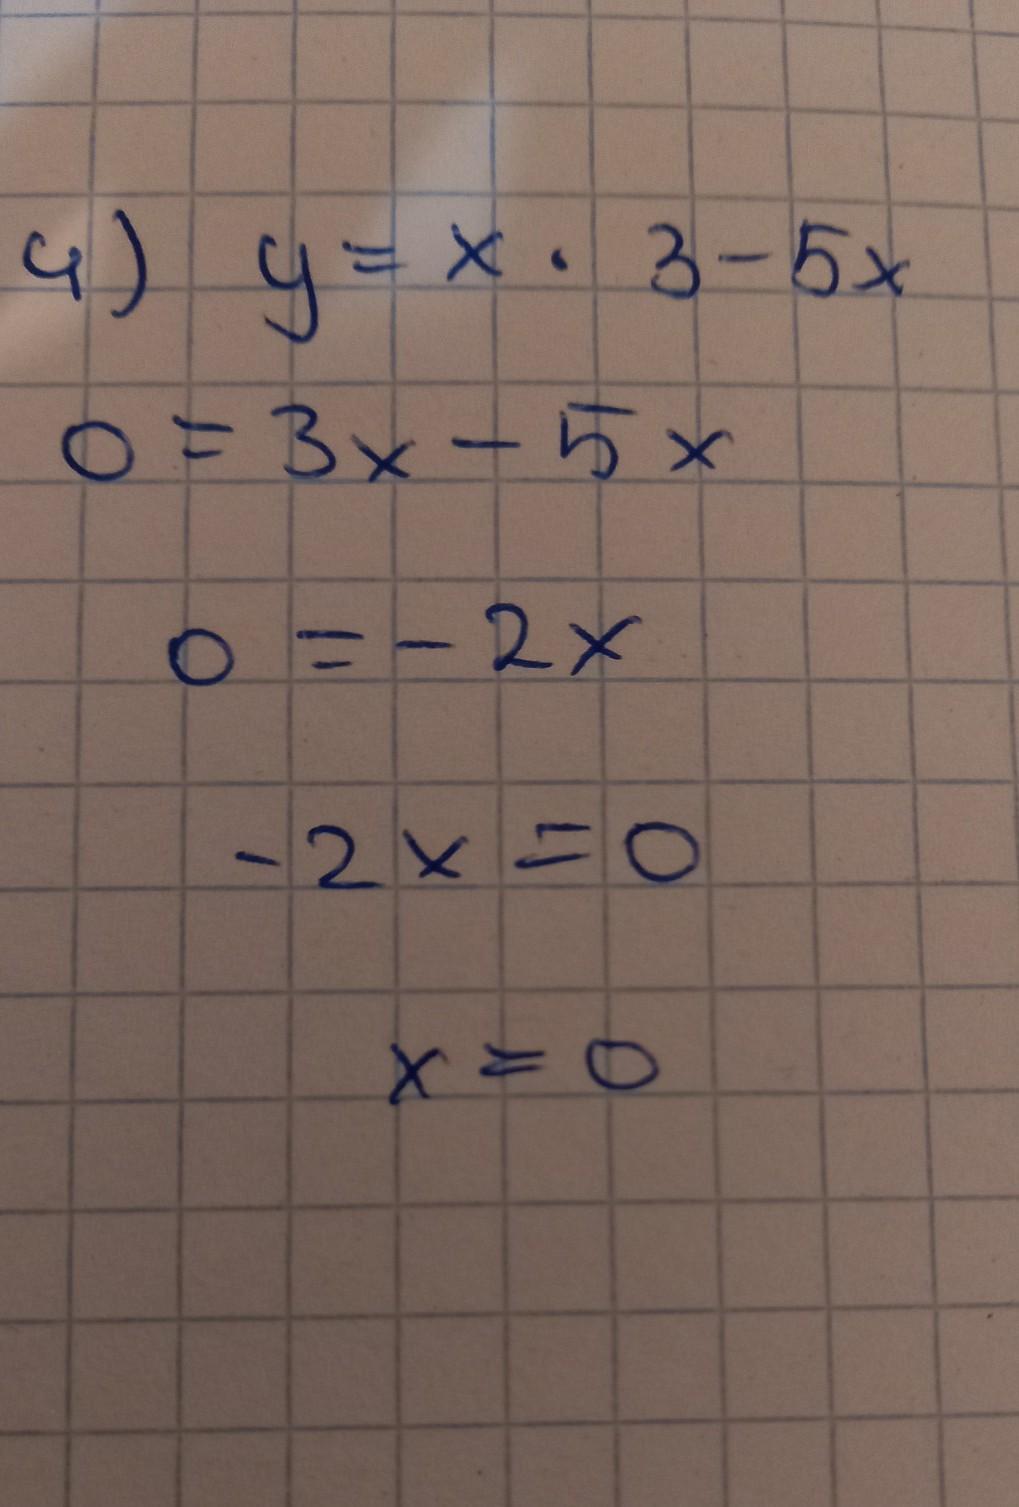 4) y = x · 3 - 5x
0 = 3x - 5x
0 = - 2x
- 2x = 0
x = 0